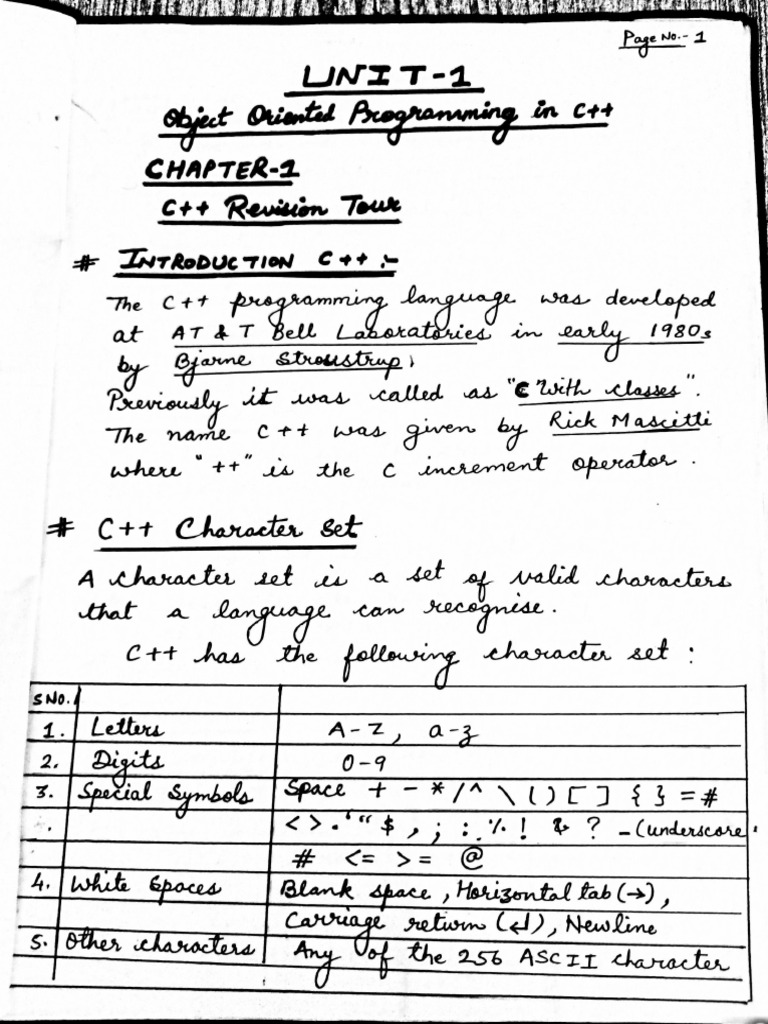 Page No.- 1
UNIT-1
Object Oriented Programming in C++
CHAPTER-1
C++ Revision Tour
# INTRODUCTION C++ :-
The C++ programming language was developed
at AT & T Bell Laboratories in early 1980s
by Bjarne Stroustrup.
Previously it was called as "C With classes".
The name C++ was given by Rick Mascitti
where "++" is the C increment operator.
# C++ Character Set
A character set is a set of valid characters
that a language can recognise.
C++ has the following character set :
S No.
1. Letters A-Z, a-z
2. Digits 0-9
3. Special Symbols Space + - * / ^ \ ( ) [ ] { } = #
< > . ' " $ , ; : % ! & ? _ (underscore
# <= >= @
4. White Spaces Blank space, Horizontal tab (→),
Carriage return (↲), Newline
5. Other characters Any of the 256 ASCII character